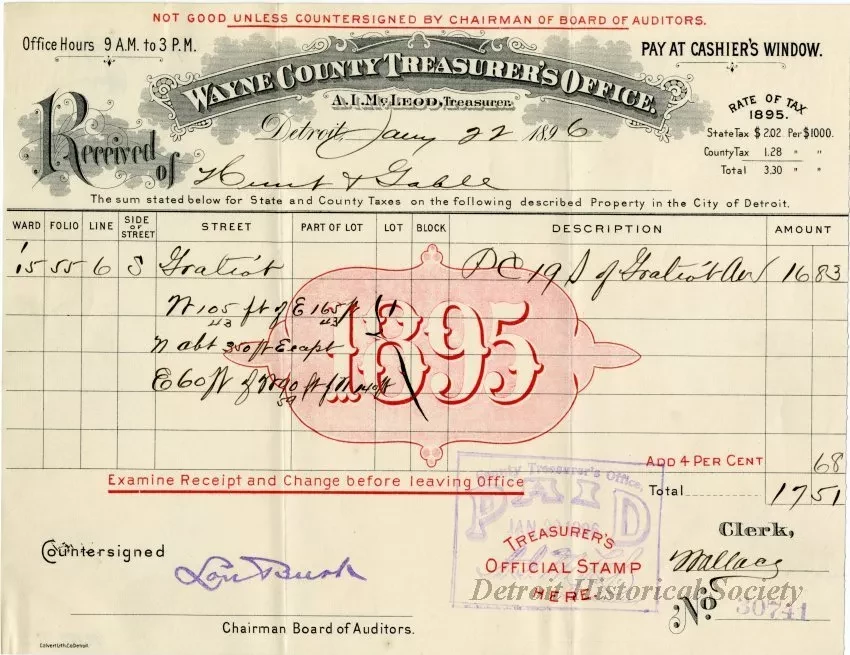 NOT GOOD UNLESS COUNTERSIGNED BY CHAIRMAN OF BOARD OF AUDITORS.
Office Hours 9 A.M. to 3 P.M.
PAY AT CASHIER'S WINDOW.
WAYNE COUNTY TREASURER'S OFFICE.
A. I. McLEOD, Treasurer.
RATE OF TAX
1895.
State Tax $ 2.02 Per $1000.
County Tax 1.28 " "
Total 3.30 " "
Detroit, Jany 22 1896
Received of Hunt & Gable
The sum stated below for State and County Taxes on the following described Property in the City of Detroit.
WARD FOLIO LINE SIDE OF STREET STREET PART OF LOT LOT BLOCK DESCRIPTION AMOUNT
15 55 6 S Gratiot PC 19 S of Gratiot Av 16 83
W 105 ft of E 165 ft
43 43
N abt 350 ft Ecept
E 60 ft of W 90 ft of N 140 ft
59
1895
ADD 4 PER CENT 68
Examine Receipt and Change before leaving Office
Total 17 51
County Treasurer's Office,
PAID
JAN 1896
TREASURER'S
OFFICIAL STAMP
HERE.
Clerk,
Wallace
Countersigned
Chairman Board of Auditors.
Detroit Historical Society
No 30741
Calvert Lith. Co. Detroit.